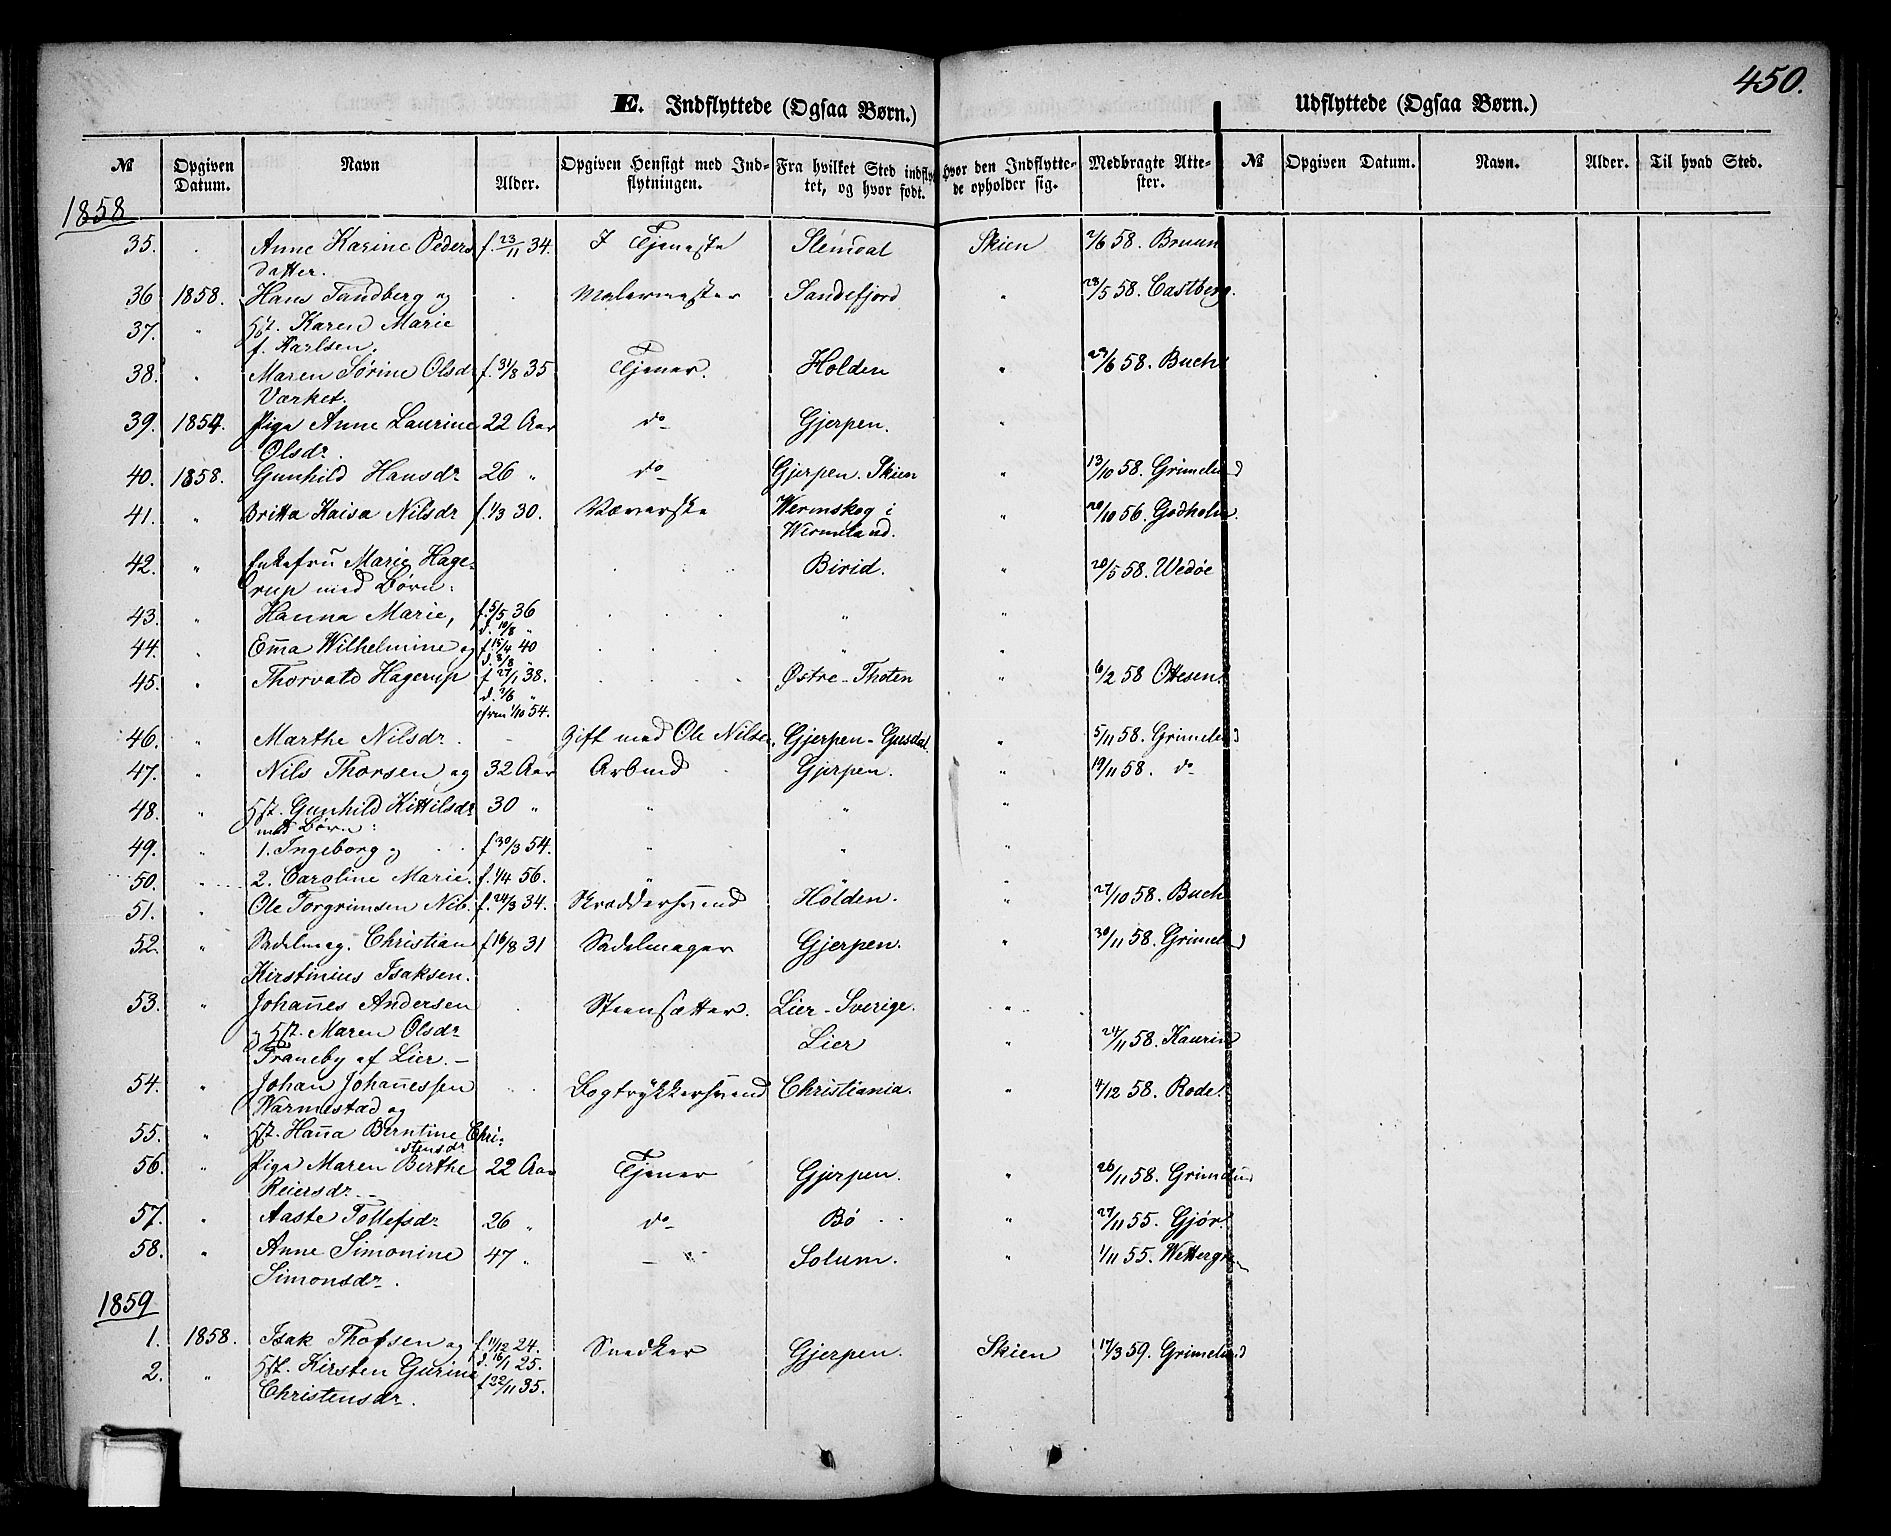 450.
E. Indflyttede (Ogsaa Børn.)
Udflyttede (Ogsaa Børn.)
№ Opgiven Datum. Navn Alder. Opgiven Hensigt med Indflytningen. Fra hvilket Sted indflyttet, og hvor født. Hvor den Indflyttede opholder sig. Medbragte Attester. № Opgiven Datum. Navn. Alder. Til hvad Sted.
1858
35. Anne Karine Peders f. 23/11 34. I Tjeneste Slemdal Skien 2/6 58. Bruun
datter.
36 1858. Hans Tandberg og Malermester Sandefjord " 23/5 58. Castberg.
37. " Hst. Karen Marie
f. Karlsen.
38. " Maren Sørine Olsd. f. 31/8 35 Tjener. Holden " 29/6 58. Buch
Værket.
39. 1854. Pige Anne Laurine 22 Aar do Gjerpen. "
Olsdr.
40. 1858. Gunhild Hansdr 26 " do Gjerpen. Skien " 13/10 58. Grimelund
41. " Britta Kaisa Nilsdr f. 1/3 30. Væverske Wermskog i " 20/10 56. Godholm.
Wermeland.
42. " Enkefru Marie Hage- Birid. " 20/5 58. Wedøe
rup med Børn:
43. " Hanna Marie, f. 5/5 36 " "
d. 10/8 "
44. " Em̄a Wilhelmine og f 15/4 40 " "
d. 8/8 "
45. " Thorvald Hagerup f 27/1 38. Østre-Thoten " 6/2 58 Ottesen.
d. 3/6 "
1/10 54.
46. " Marthe Nilsdr. - Gift med Ole Nilsen. Gjerpen- " 5/11 58. Grimelund
47. " Nils Thorsen og 32 Aar Arbmd Gjerpen. " 19/11 58. do
48. " Hst. Gunhild Kittilsdr 30 " " " "
med Børn:
49. " 1. Ingeborg og f 30/3 54. " " "
50. " 2. Caroline Marie. f. 1/4 56. " " "
51. " Ole Torgrimsen Nib. f. 24/3 34. Skræddersvend Holden. " 27/10 58. Buch
52. " Sadelmag. Christian f 16/8 31 Sadelmager Gjerpen. " 30/11 58. Grimelund
Kirstinius Isaksen.
53. " Johan̄es Andersen Steensætter. Lier-Sverige. "
og Hst. Maren Olsdr Lier " 24/11 58. Kaurin
Traneby af Lier. -
54. " Johan Johan̄essen Bogtrykkersvend Christiania. " 4/12 58. Rode.
Warmestad og
55. " Hst. Han̄a Berntine Chri-
stensdr
56. " Pige Maren Berthe 22 Aar Tjener Gjerpen. " 26/11 58. Grimelund
Reiersdr. -
57. " Aaste Tollefsdr 26 " do Bø " 27/11 55. Gjør.
58. " Anne Simonine 47 " - Solum. " 1/11 55. Wettergren
Simonsdr.
1859
1. 1858. Isak Thofsen og f. 11/12 24. Snedker Gjerpen. Skien 17/3 59. Grimelund
d. 16/1 25.
2. " Hst. Kirsten Gurine f 22/11 35.
Christensdr.